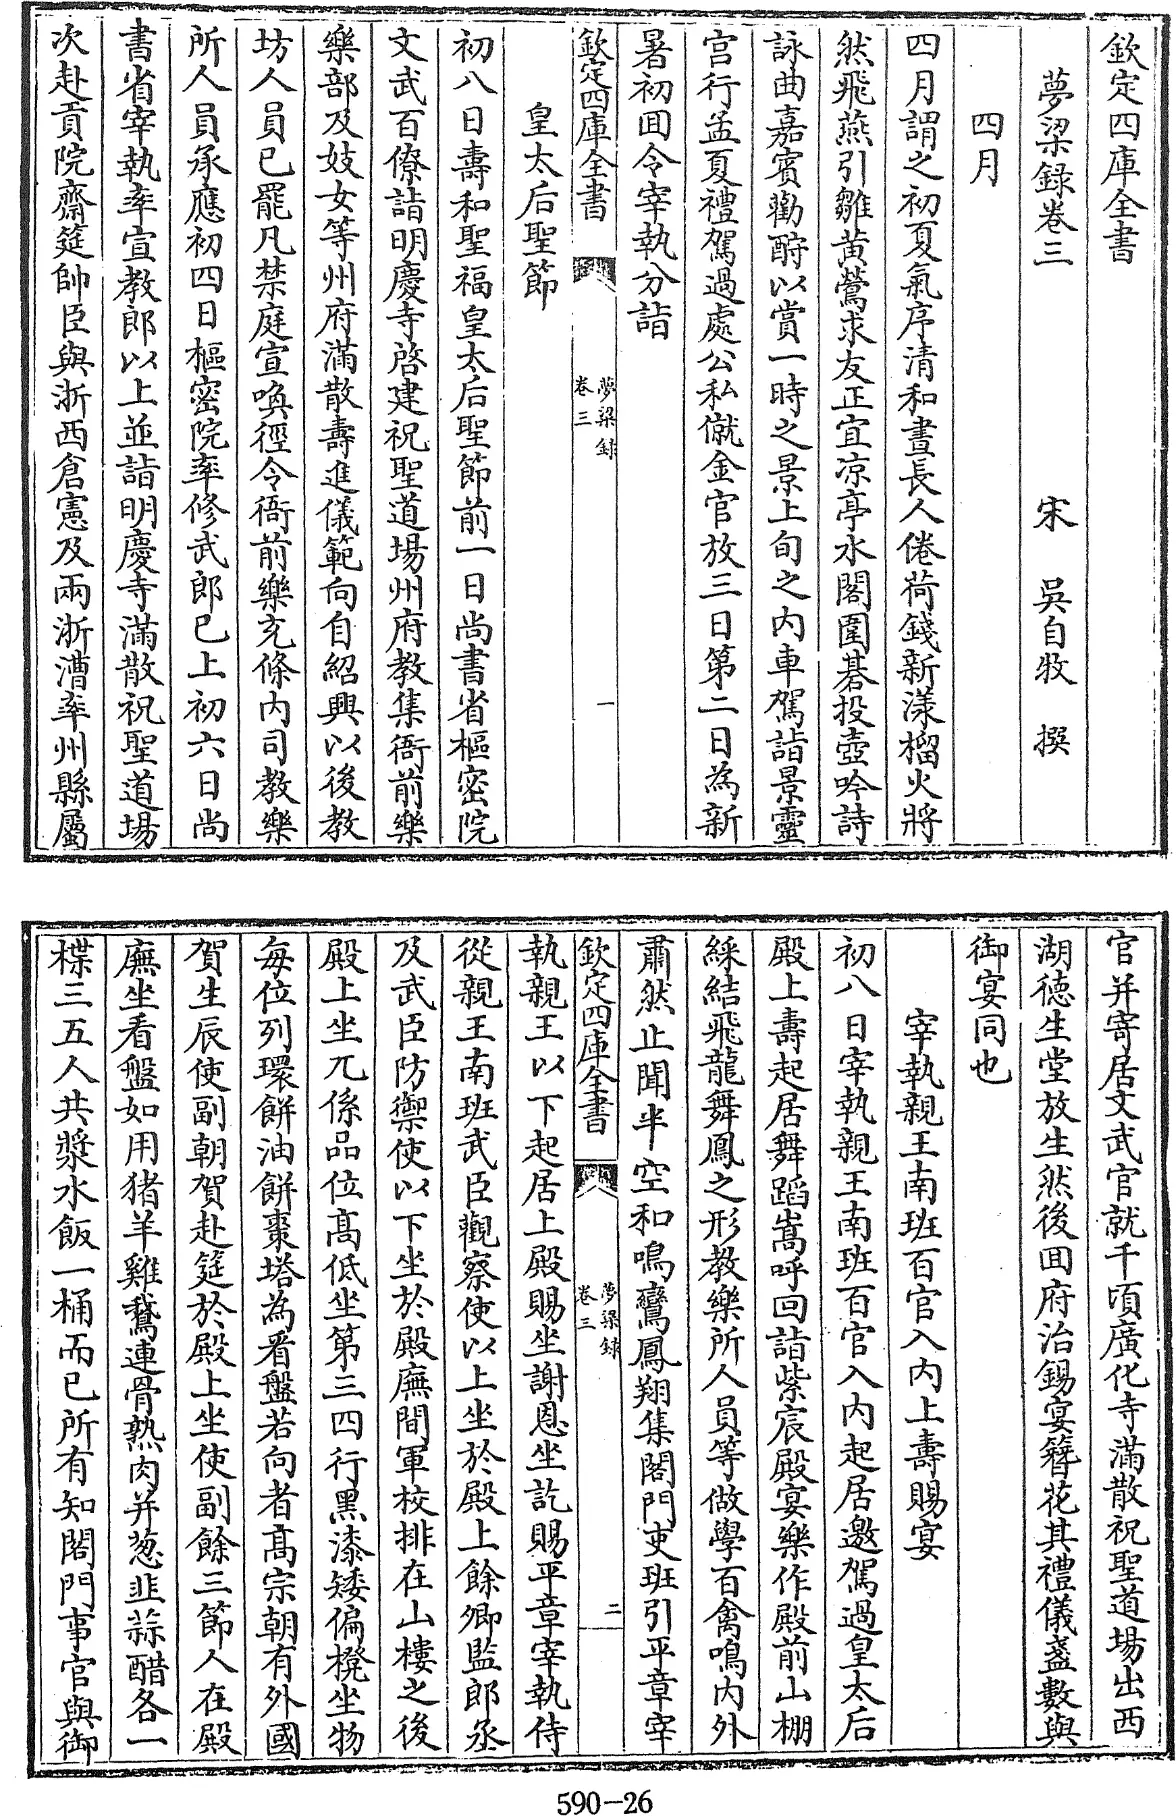 欽定四庫全書
夢梁錄卷三
宋 吳自牧 撰
四月
四月謂之初夏氣序清和晝長人倦荷錢新漾榴火將
然飛燕引雛黃鶯求友正宜凉亭水閣圍碁投壺吟詩
詠曲嘉賓勸酧以賞一時之景上旬之内車駕詣景靈
宫行孟夏禮駕過處公私僦金官放三日第二日為新
暑初回令宰執分詣
欽定四庫全書
夢梁錄
卷三
一
皇太后聖節
初八日壽和聖福皇太后聖節前一日尚書省樞密院
文武百僚詣明慶寺啓建祝聖道場州府教集衙前樂
樂部及妓女等州府滿散壽進儀範向自紹興以後教
坊人員已罷凡禁庭宣喚徑令衙前樂充條内司教樂
所人員承應初四日樞密院率修武郎已上初六日尚
書省宰執率宣教郎以上並詣明慶寺滿散祝聖道場
次赴貢院齋筵帥臣與浙西倉憲及兩浙漕率州縣屬
官并寄居文武官就千頃廣化寺滿散祝聖道場出西
湖德生堂放生然後回府治錫宴簪花其禮儀盞數與
御宴同也
宰執親王南班百官入内上壽賜宴
初八日宰執親王南班百官入内起居邀駕過皇太后
殿上壽起居舞蹈嵩呼回詣紫宸殿宴樂作殿前山棚
綵結飛龍舞鳳之形教樂所人員等做學百禽鳴内外
肅然止聞半空和鳴鸞鳳翔集閤門吏班引平章宰
欽定四庫全書
夢梁錄
卷三
二
執親王以下起居上殿賜坐謝恩坐訖賜平章宰執侍
從親王南班武臣觀察使以上坐於殿上餘卿監郎丞
及武臣防禦使以下坐於殿廡間軍校排在山樓之後
殿上坐兀係品位髙低坐第三四行黑漆矮偏櫈坐物
每位列環餅油餅棗塔為看盤若向者髙宗朝有外國
賀生辰使副朝賀赴筵於殿上坐使副餘三節人在殿
廡坐看盤如用猪羊雞鵝連骨熟肉并葱韭蒜醋各一
楪三五人共漿水飯一桶而已所有知閤門事官與御
590-26